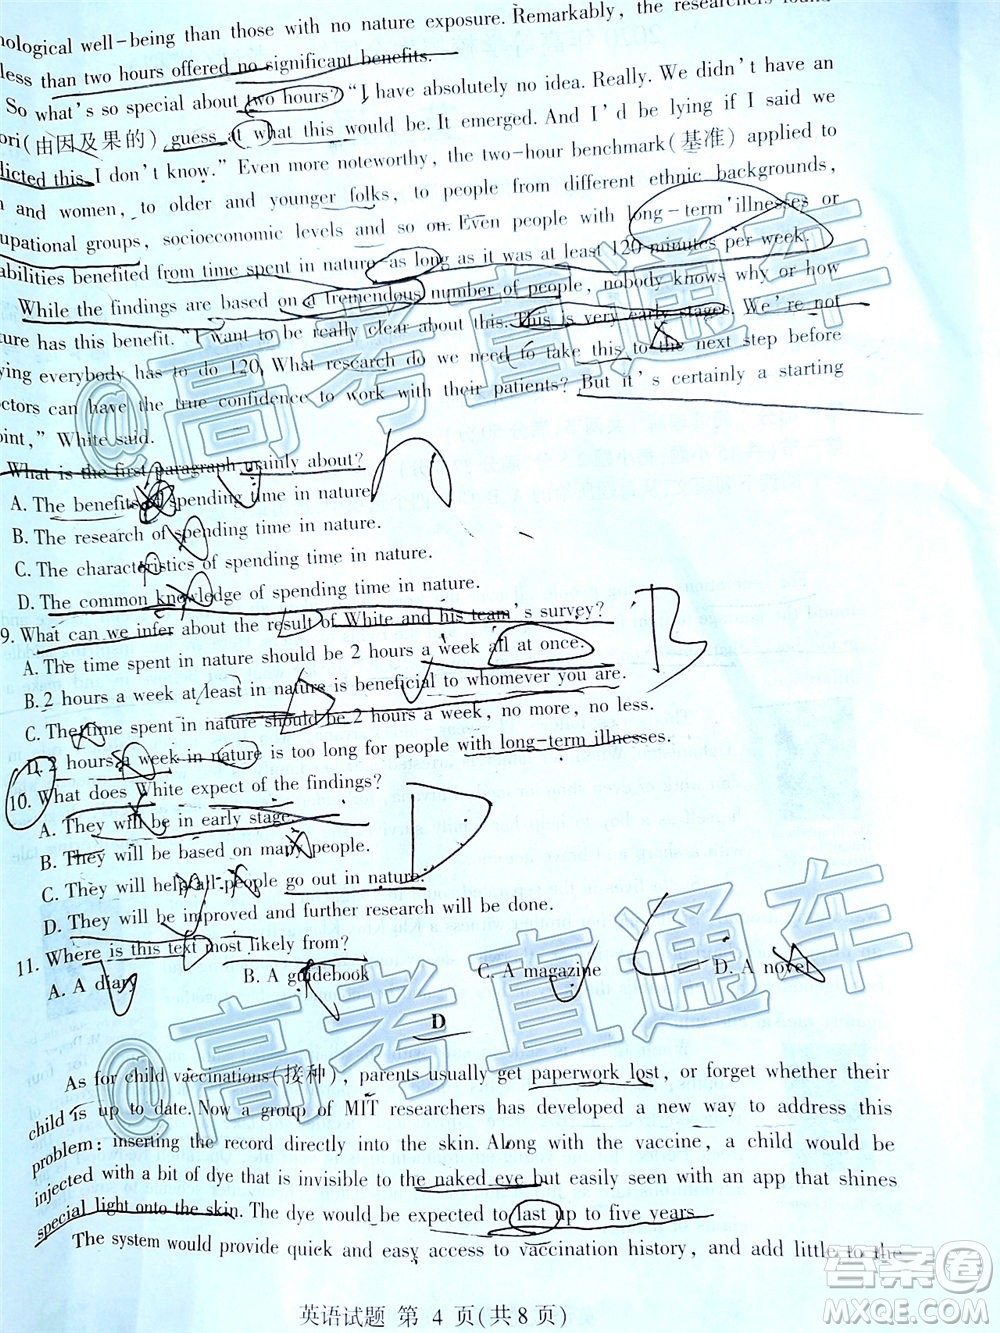 nological well-being than those with no nature exposure. Remarkably, the researchers found
less than two hours offered no significant benefits.
So what's so special about two hours? "I have absolutely no idea. Really. We didn't have an
ori(由因及果的) guess at what this would be. It emerged. And I'd be lying if I said we
dicted this, I don't know." Even more noteworthy, the two-hour benchmark(基准) applied to
n and women, to older and younger folks, to people from different ethnic backgrounds,
upational groups, socioeconomic levels and so on. Even people with long-term illnesses or
abilities benefited from time spent in nature as long as it was at least 120 minutes per week.
While the findings are based on a tremendous number of people, nobody knows why or how
ture has this benefit. "I want to be really clear about this. This is very early stages. We're not
ying everybody has to do 120. What research do we need to take this to the next step before
ctors can have the true confidence to work with their patients? But it's certainly a starting
oint," White said.
What is the first paragraph mainly about?
A. The benefits of spending time in nature.
B. The research of spending time in nature.
C. The characteristics of spending time in nature.
D. The common knowledge of spending time in nature.
9. What can we infer about the result of White and his team's survey?
A. The time spent in nature should be 2 hours a week all at once.
B. 2 hours a week at least in nature is beneficial to whomever you are.
C. The time spent in nature should be 2 hours a week, no more, no less.
D. 2 hours a week in nature is too long for people with long-term illnesses.
10. What does White expect of the findings?
A. They will be in early stage.
B. They will be based on many people.
C. They will help all people go out in nature.
D. They will be improved and further research will be done.
11. Where is this text most likely from?
A. A diary B. A guidebook C. A magazine D. A novel
D
As for child vaccinations(接种), parents usually get paperwork lost, or forget whether their
child is up to date. Now a group of MIT researchers has developed a new way to address this
problem: inserting the record directly into the skin. Along with the vaccine, a child would be
injected with a bit of dye that is invisible to the naked eye but easily seen with an app that shines
special light onto the skin. The dye would be expected to last up to five years.
The system would provide quick and easy access to vaccination history, and add little to the
英语试题 第 4 页(共 8 页)
@高考直通车
@高考直通车
答案圈
MXQE.COM
B
D